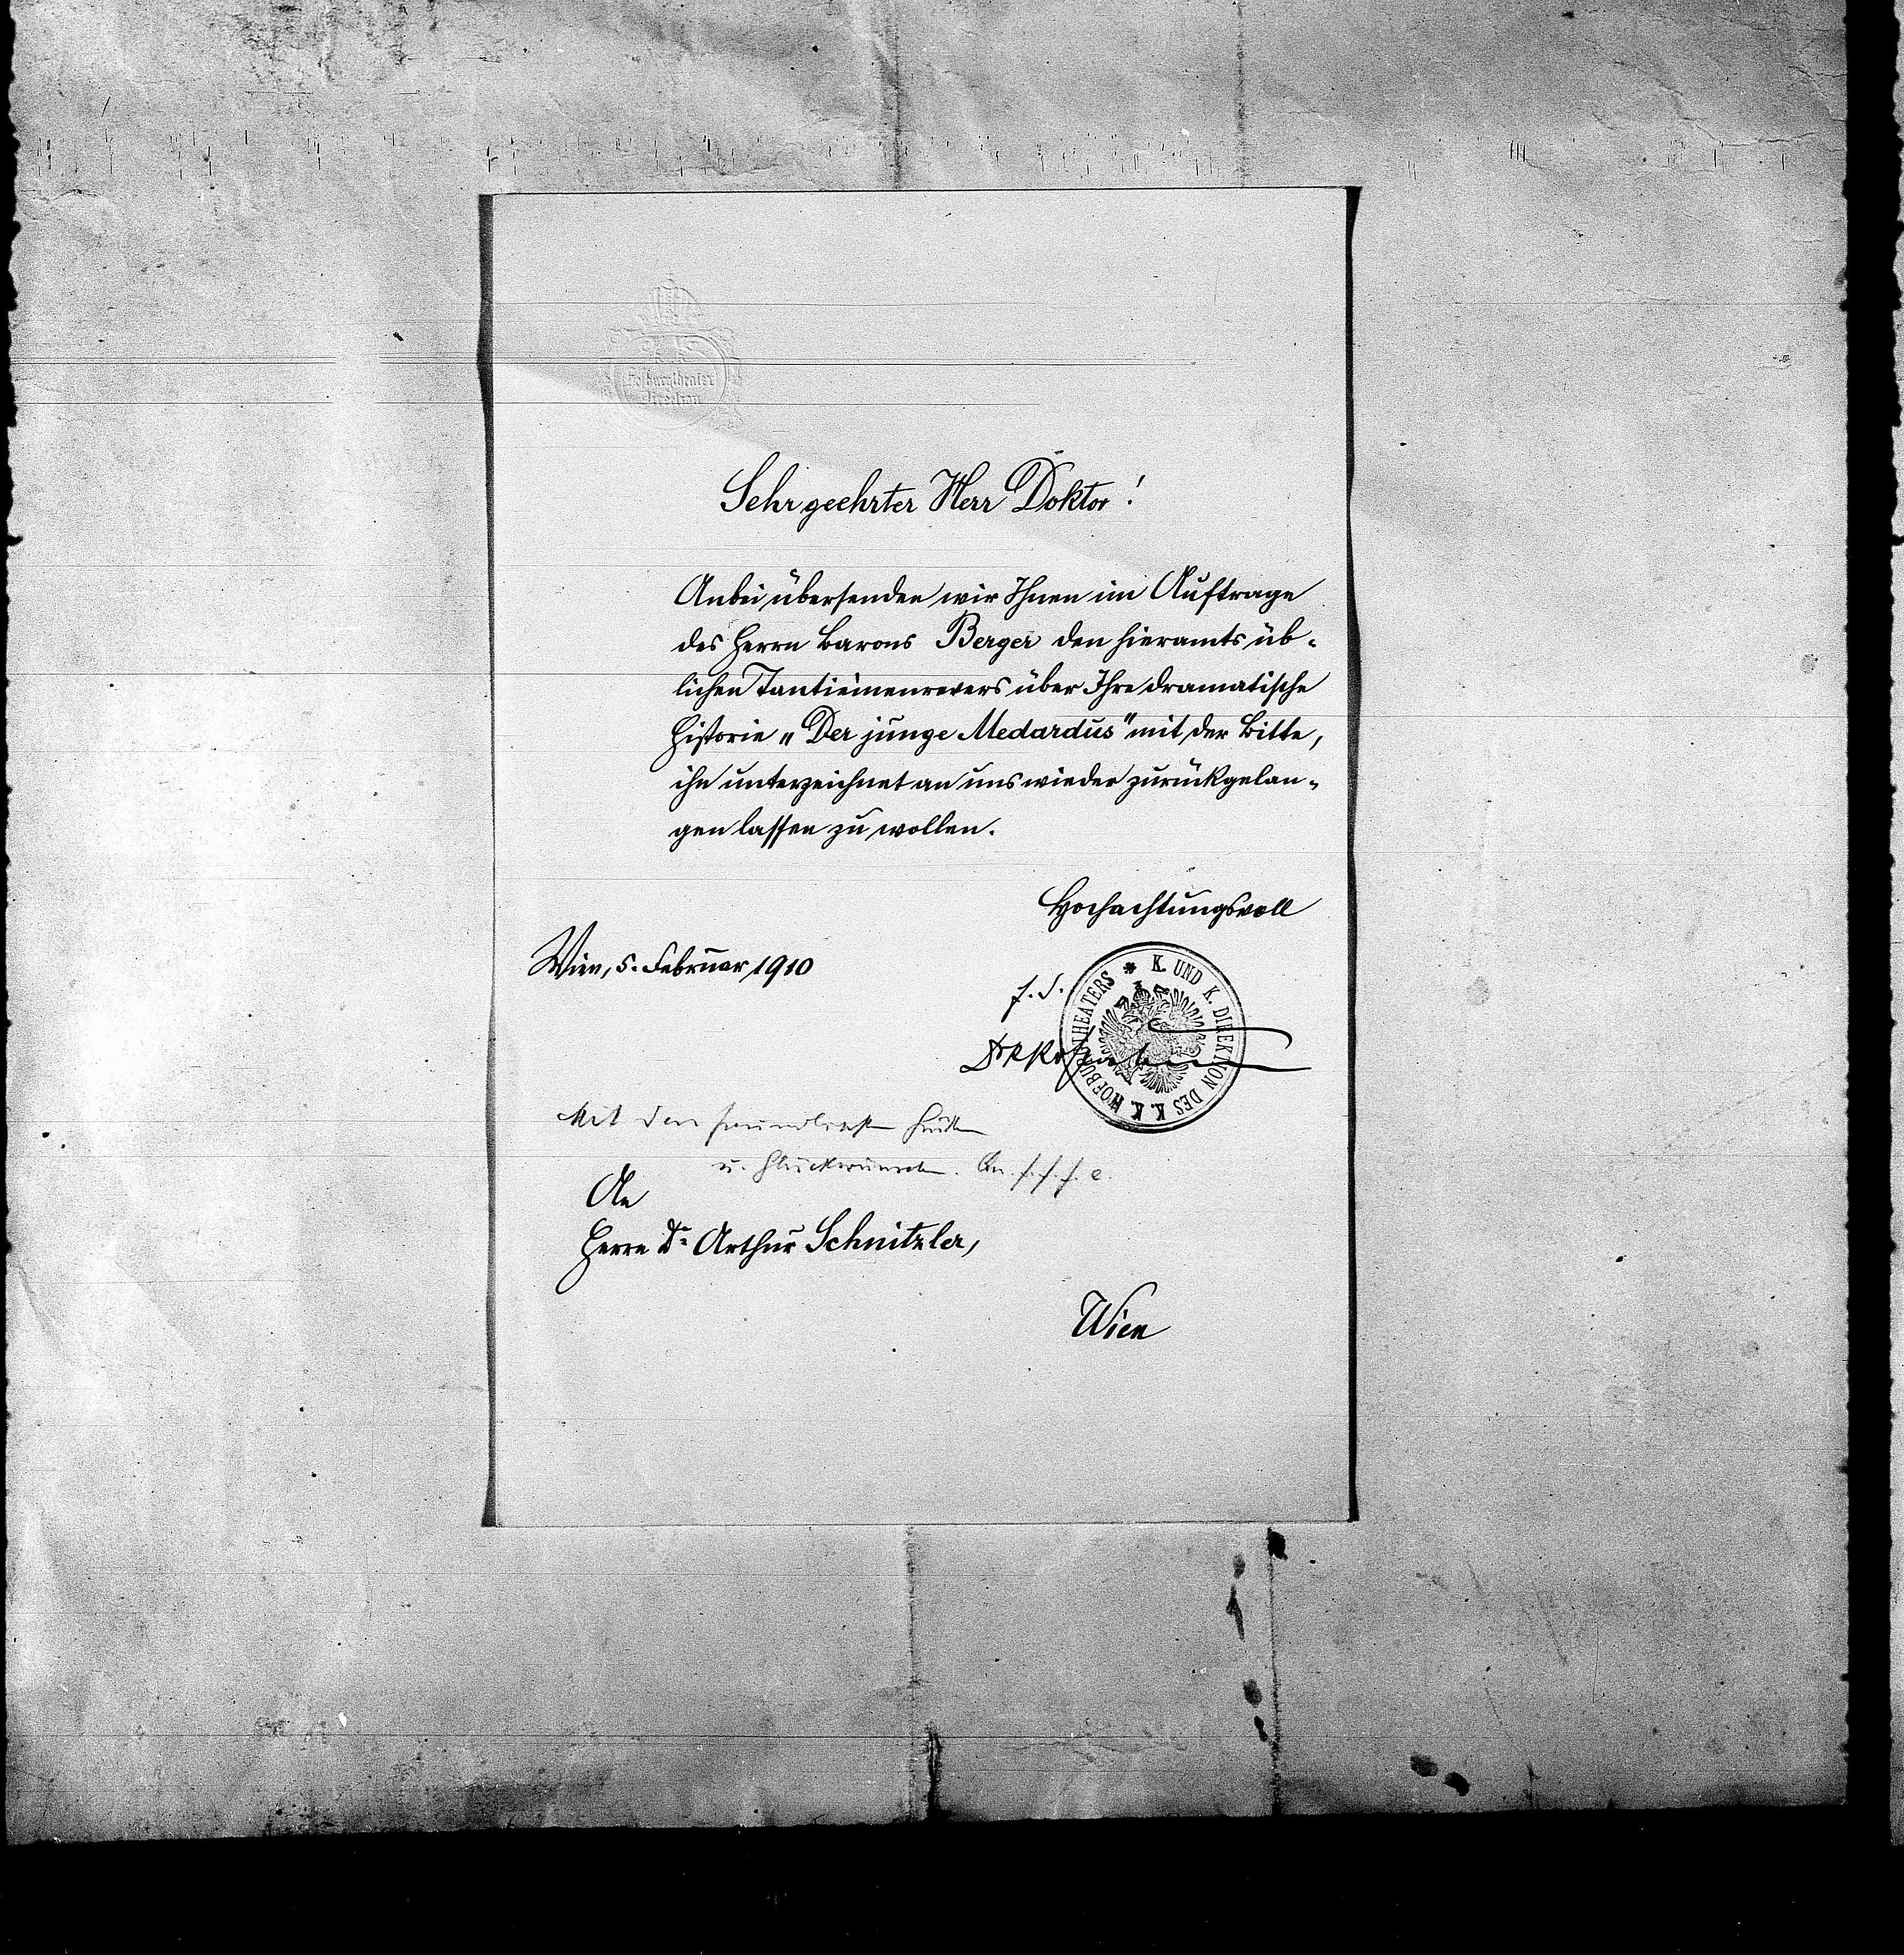 K. K.
Hofburgtheater
Direction
Sehr geehrter Herr Doktor!
Anbei übersenden wir Ihnen im Auftrage
des Herrn Barons Berger den hieramts üb-
lichen Tantièmenrevers über Ihre dramatische
Historie „Der junge Medardus" mit der Bitte,
ihn unterzeichnet an uns wieder zurückgelan-
gen lassen zu wollen.
Hochachtungsvoll
Wien, 5. Februar 1910
K. UND K. DIREKTION DES K. K. HOFBURGTHEATERS
Dr Rosenbaum
Mit den freundlichsten Grüßen
u. Glückwünschen.
An
Herrn Dr Arthur Schnitzler,
Wien